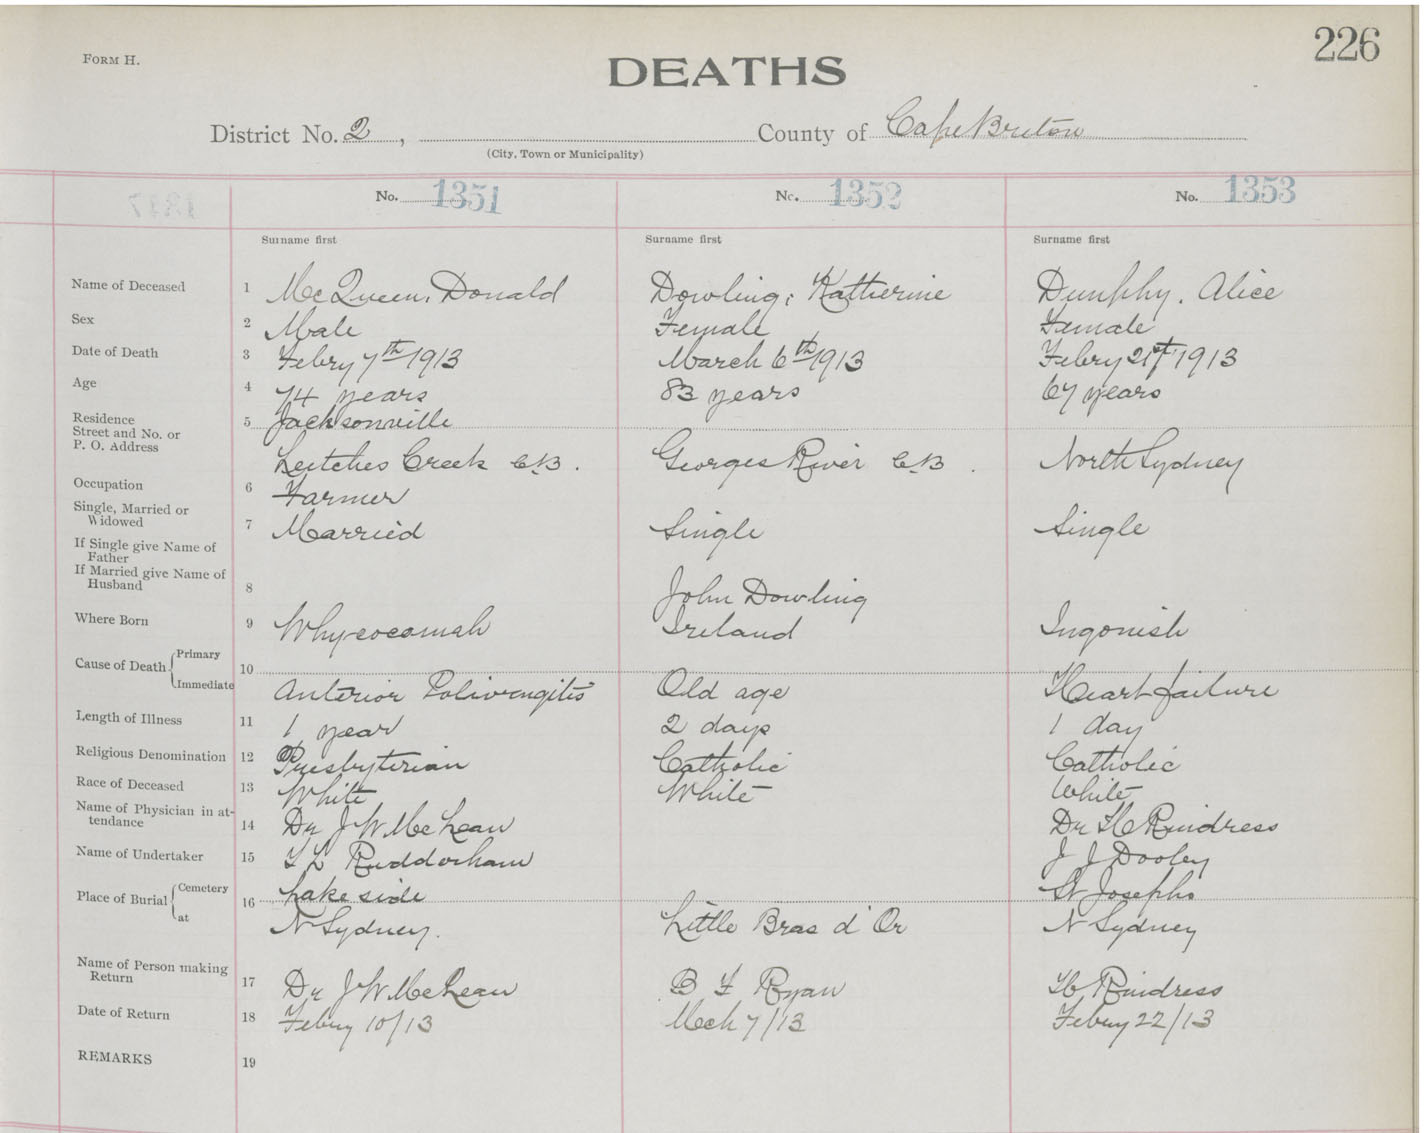 226
FORM H.
DEATHS
District No. 2, County of Cape Breton
(City, Town or Municipality)
No. 1351 No. 1352 No. 1353
Surname first Surname first Surname first
Name of Deceased 1 McQueen, Donald Dowling, Katherine Dunphy, Alice
Sex 2 Male Female Female
Date of Death 3 Febry 7th 1913 March 6th 1913 Febry 21st 1913
Age 4 74 years 83 years 67 years
Residence
Street and No. or 5 Jacksonville
P. O. Address
Leitches Creek C.B. Georges River C.B. North Sydney
Occupation 6 Farmer
Single, Married or
Widowed 7 Married Single Single
If Single give Name of
Father
If Married give Name of
Husband 8 John Dowling
Where Born 9 Whycocomah Ireland Ingonish
Cause of Death Primary 10
Immediate Anterior Old age Heart failure
Length of Illness 11 1 year 2 days 1 day
Religious Denomination 12 Presbyterian Catholic Catholic
Race of Deceased 13 White White White
Name of Physician in at-
tendance 14 Dr J W McLean Dr H Rindress
Name of Undertaker 15 Rudderham J J Dooley
Place of Burial Cemetery 16 Lakeside St Josephs
at N Sydney. Little Bras d'Or N Sydney
Name of Person making
Return 17 Dr J W McLean B F Ryan H Rindress
Date of Return 18 Febry 10/13 Mch 7/13 Febry 22/13
REMARKS 19